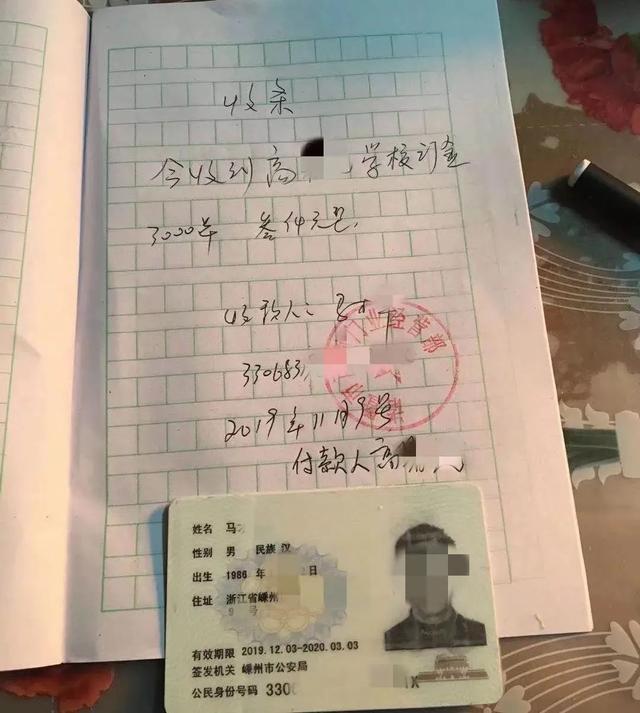 收条
今收到高 学校订金
3000年 叁仟元正
收款人:马
330683
门业经营部
2019年11月9号
付款人高
姓名 马
性别 男 民族 汉
出生 1986 年 日
住址 浙江省嵊州
9 号
有效期限 2019.12.03-2020.03.03
签发机关 嵊州市公安局
公民身份号码 330 1X